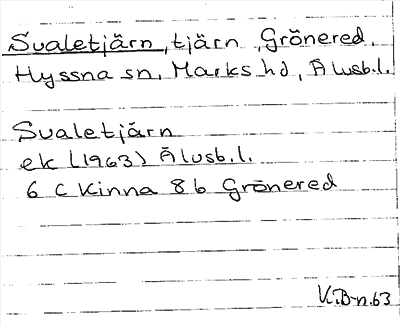 Svaletjärn, tjärn, Grönered,
Hyssna sn, Marks hd, Älvsb.l.
Svaletjärn
ek (1963) Älvsb.l.
6 C Kinna 8 b Grönered
K.B-n.63